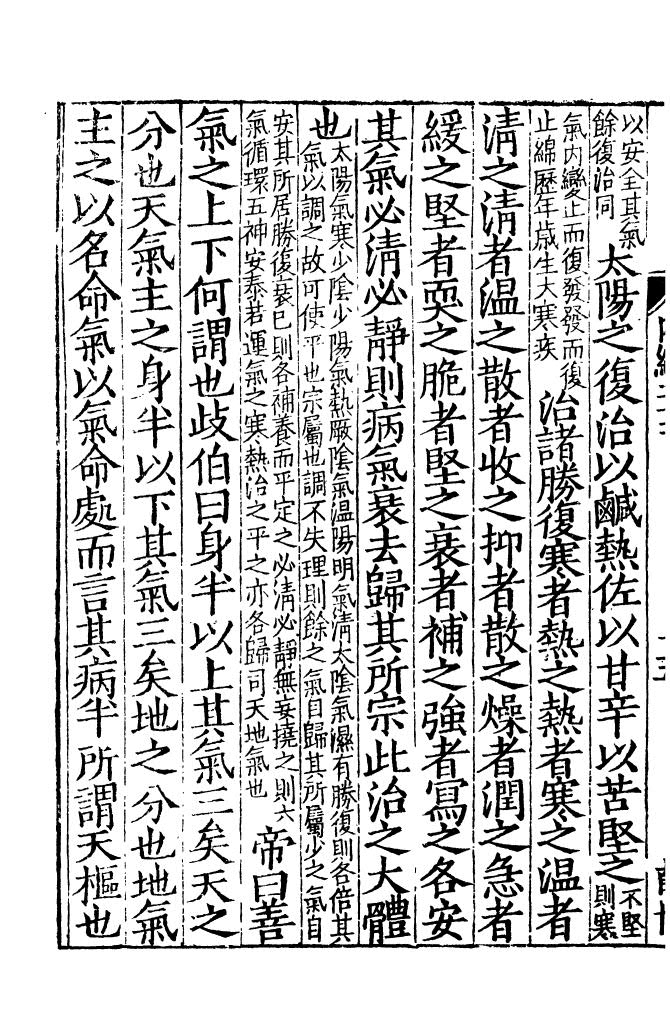 以安全其氣
餘復治同
太陽之復治以鹹熱佐以甘辛以苦堅之
不堅
則寒
氣內變止而復發發而復
止綿歷年歲生大寒疾
治諸勝復寒者熱之熱者寒之温者
清之清者温之散者收之抑者散之燥者潤之急者
緩之堅者耎之脆者堅之衰者補之強者寫之各安
其氣必清必靜則病氣衰去歸其所宗此治之大體
也
太陽氣寒少陰少陽氣熱厥陰氣温陽明氣清太陰氣濕有勝復則各倍其
氣以調之故可使平也宗屬也調不失理則餘之氣自歸其所屬少之氣自
安其所居勝復衰已則各補養而平定之必清必靜無妄撓之則六
氣循環五神安泰若運氣之寒熱治之平之亦各歸司天地氣也
帝曰善
氣之上下何謂也歧伯曰身半以上其氣三矣天之
分也天氣主之身半以下其氣三矣地之分也地氣
主之以名命氣以氣命處而言其病半所謂天樞也